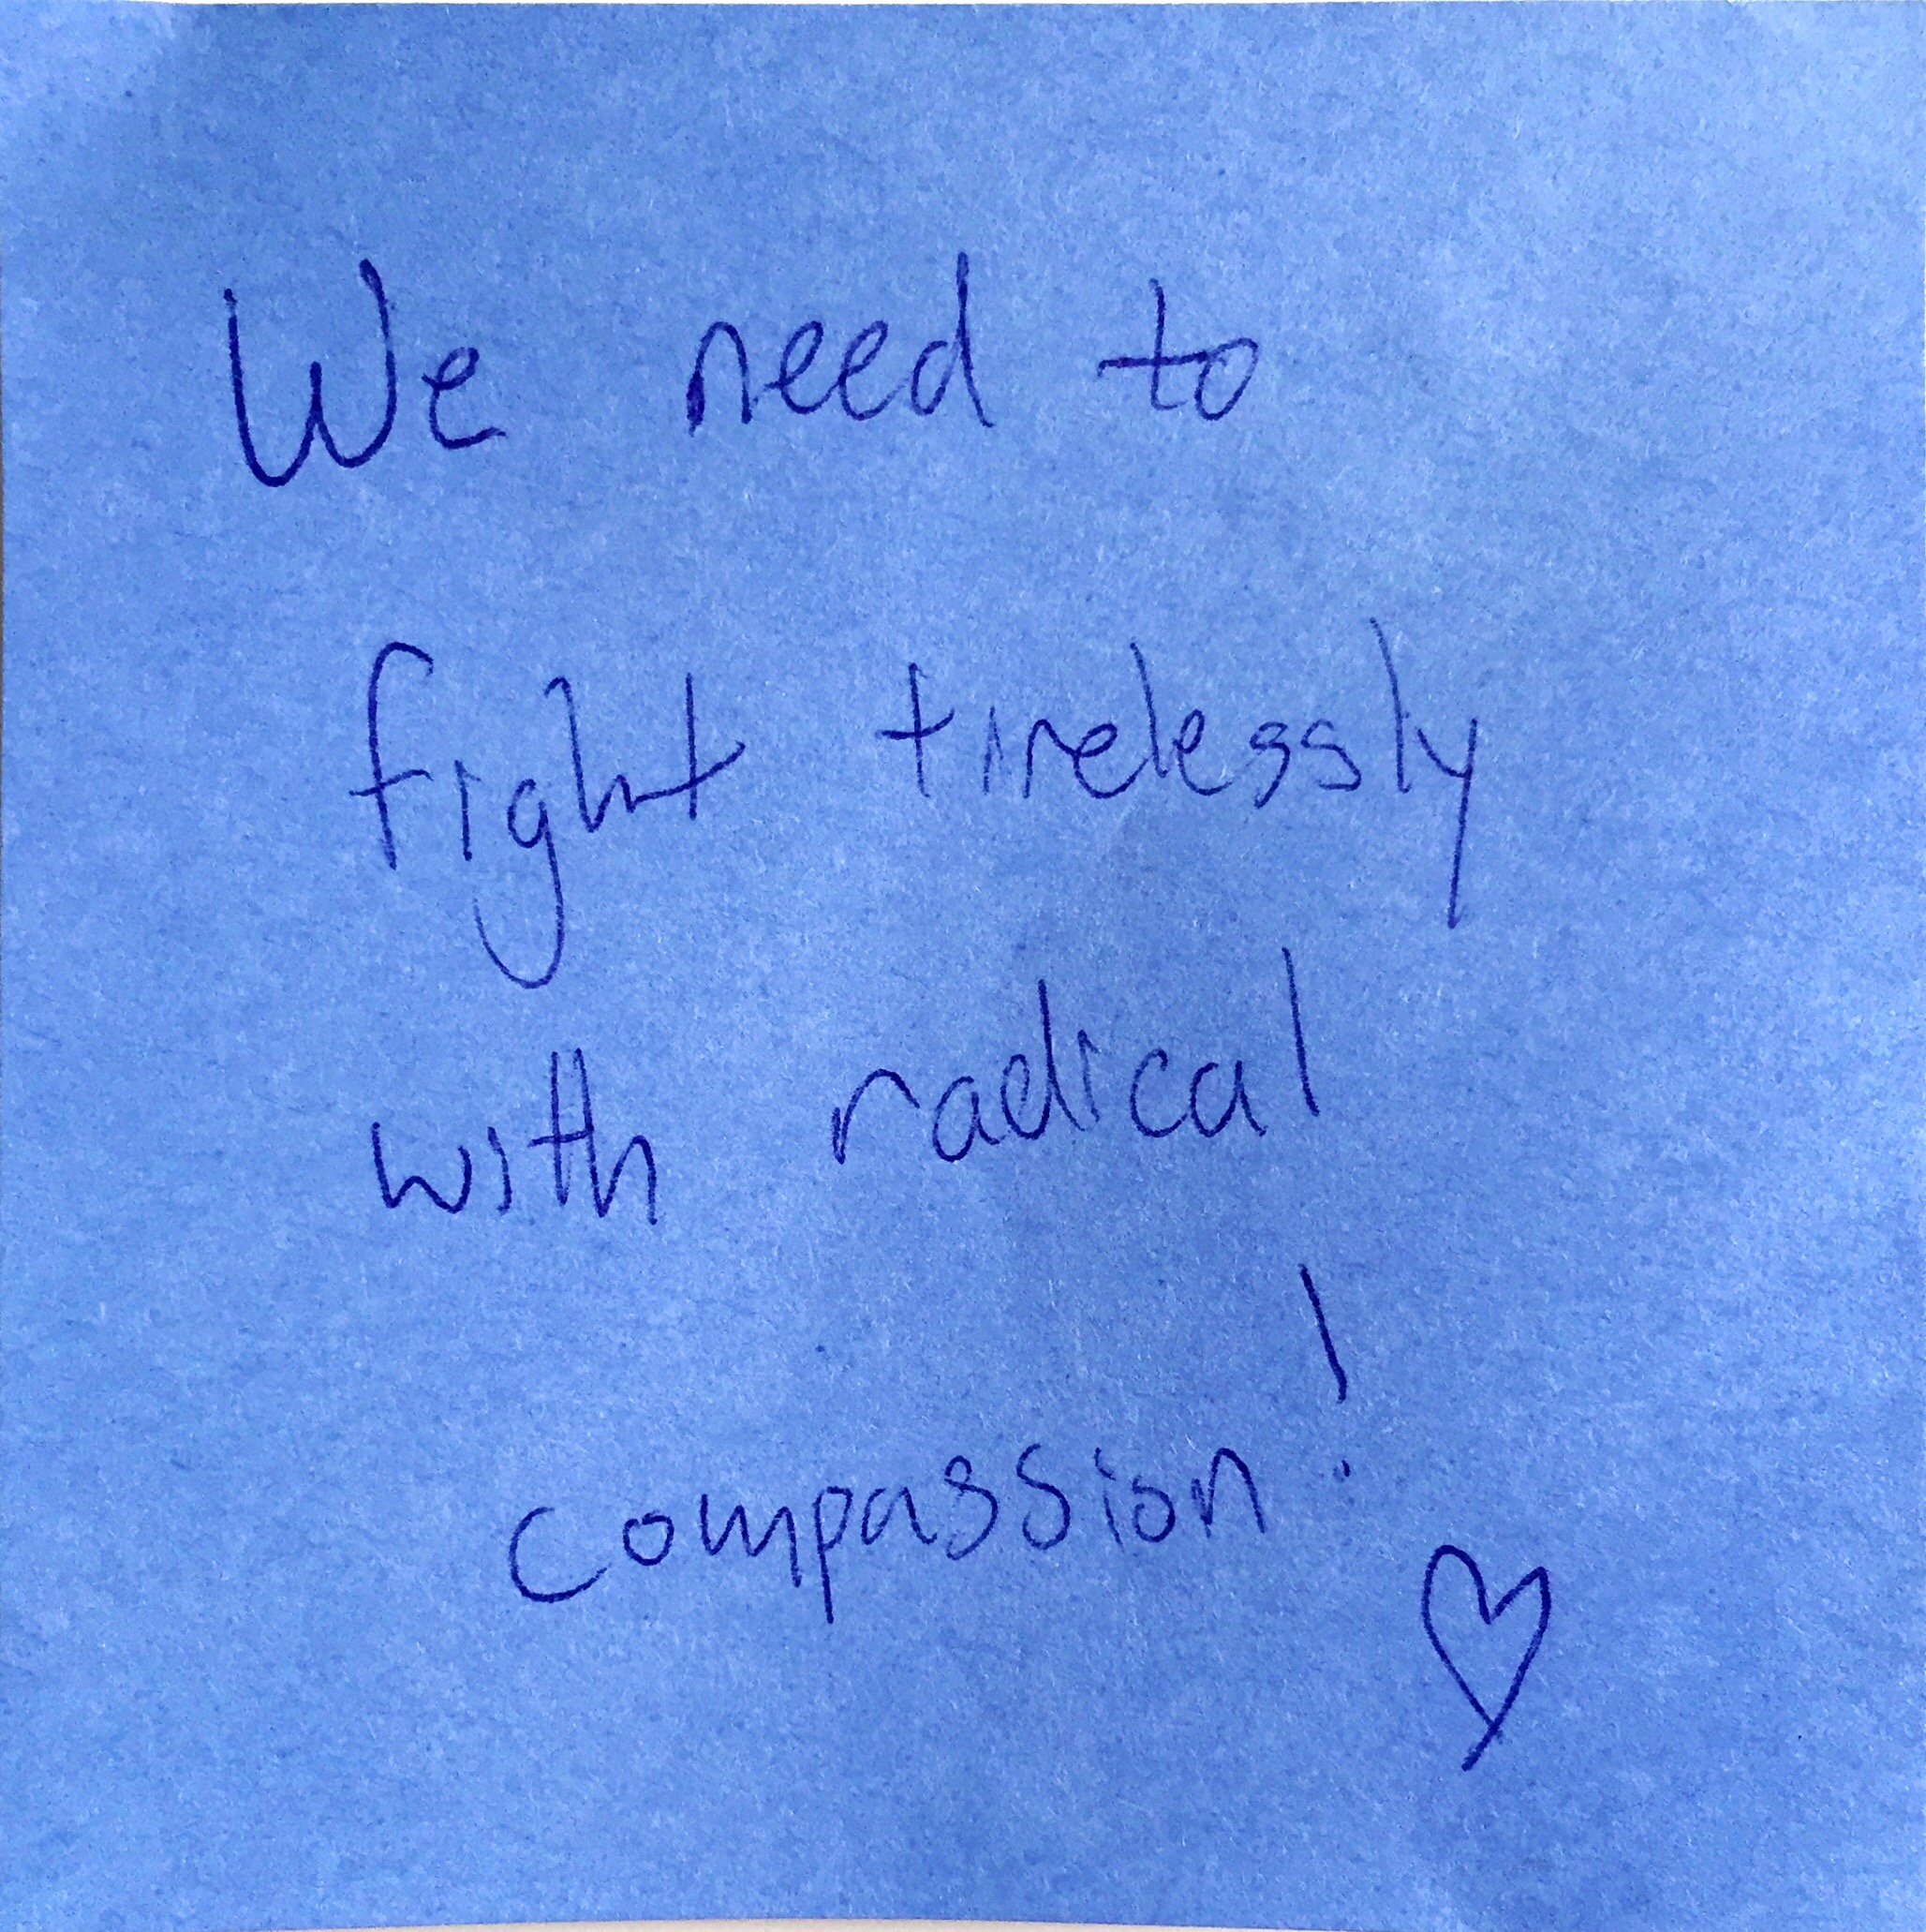 We need to
fight tirelessly
with radical
compassion!